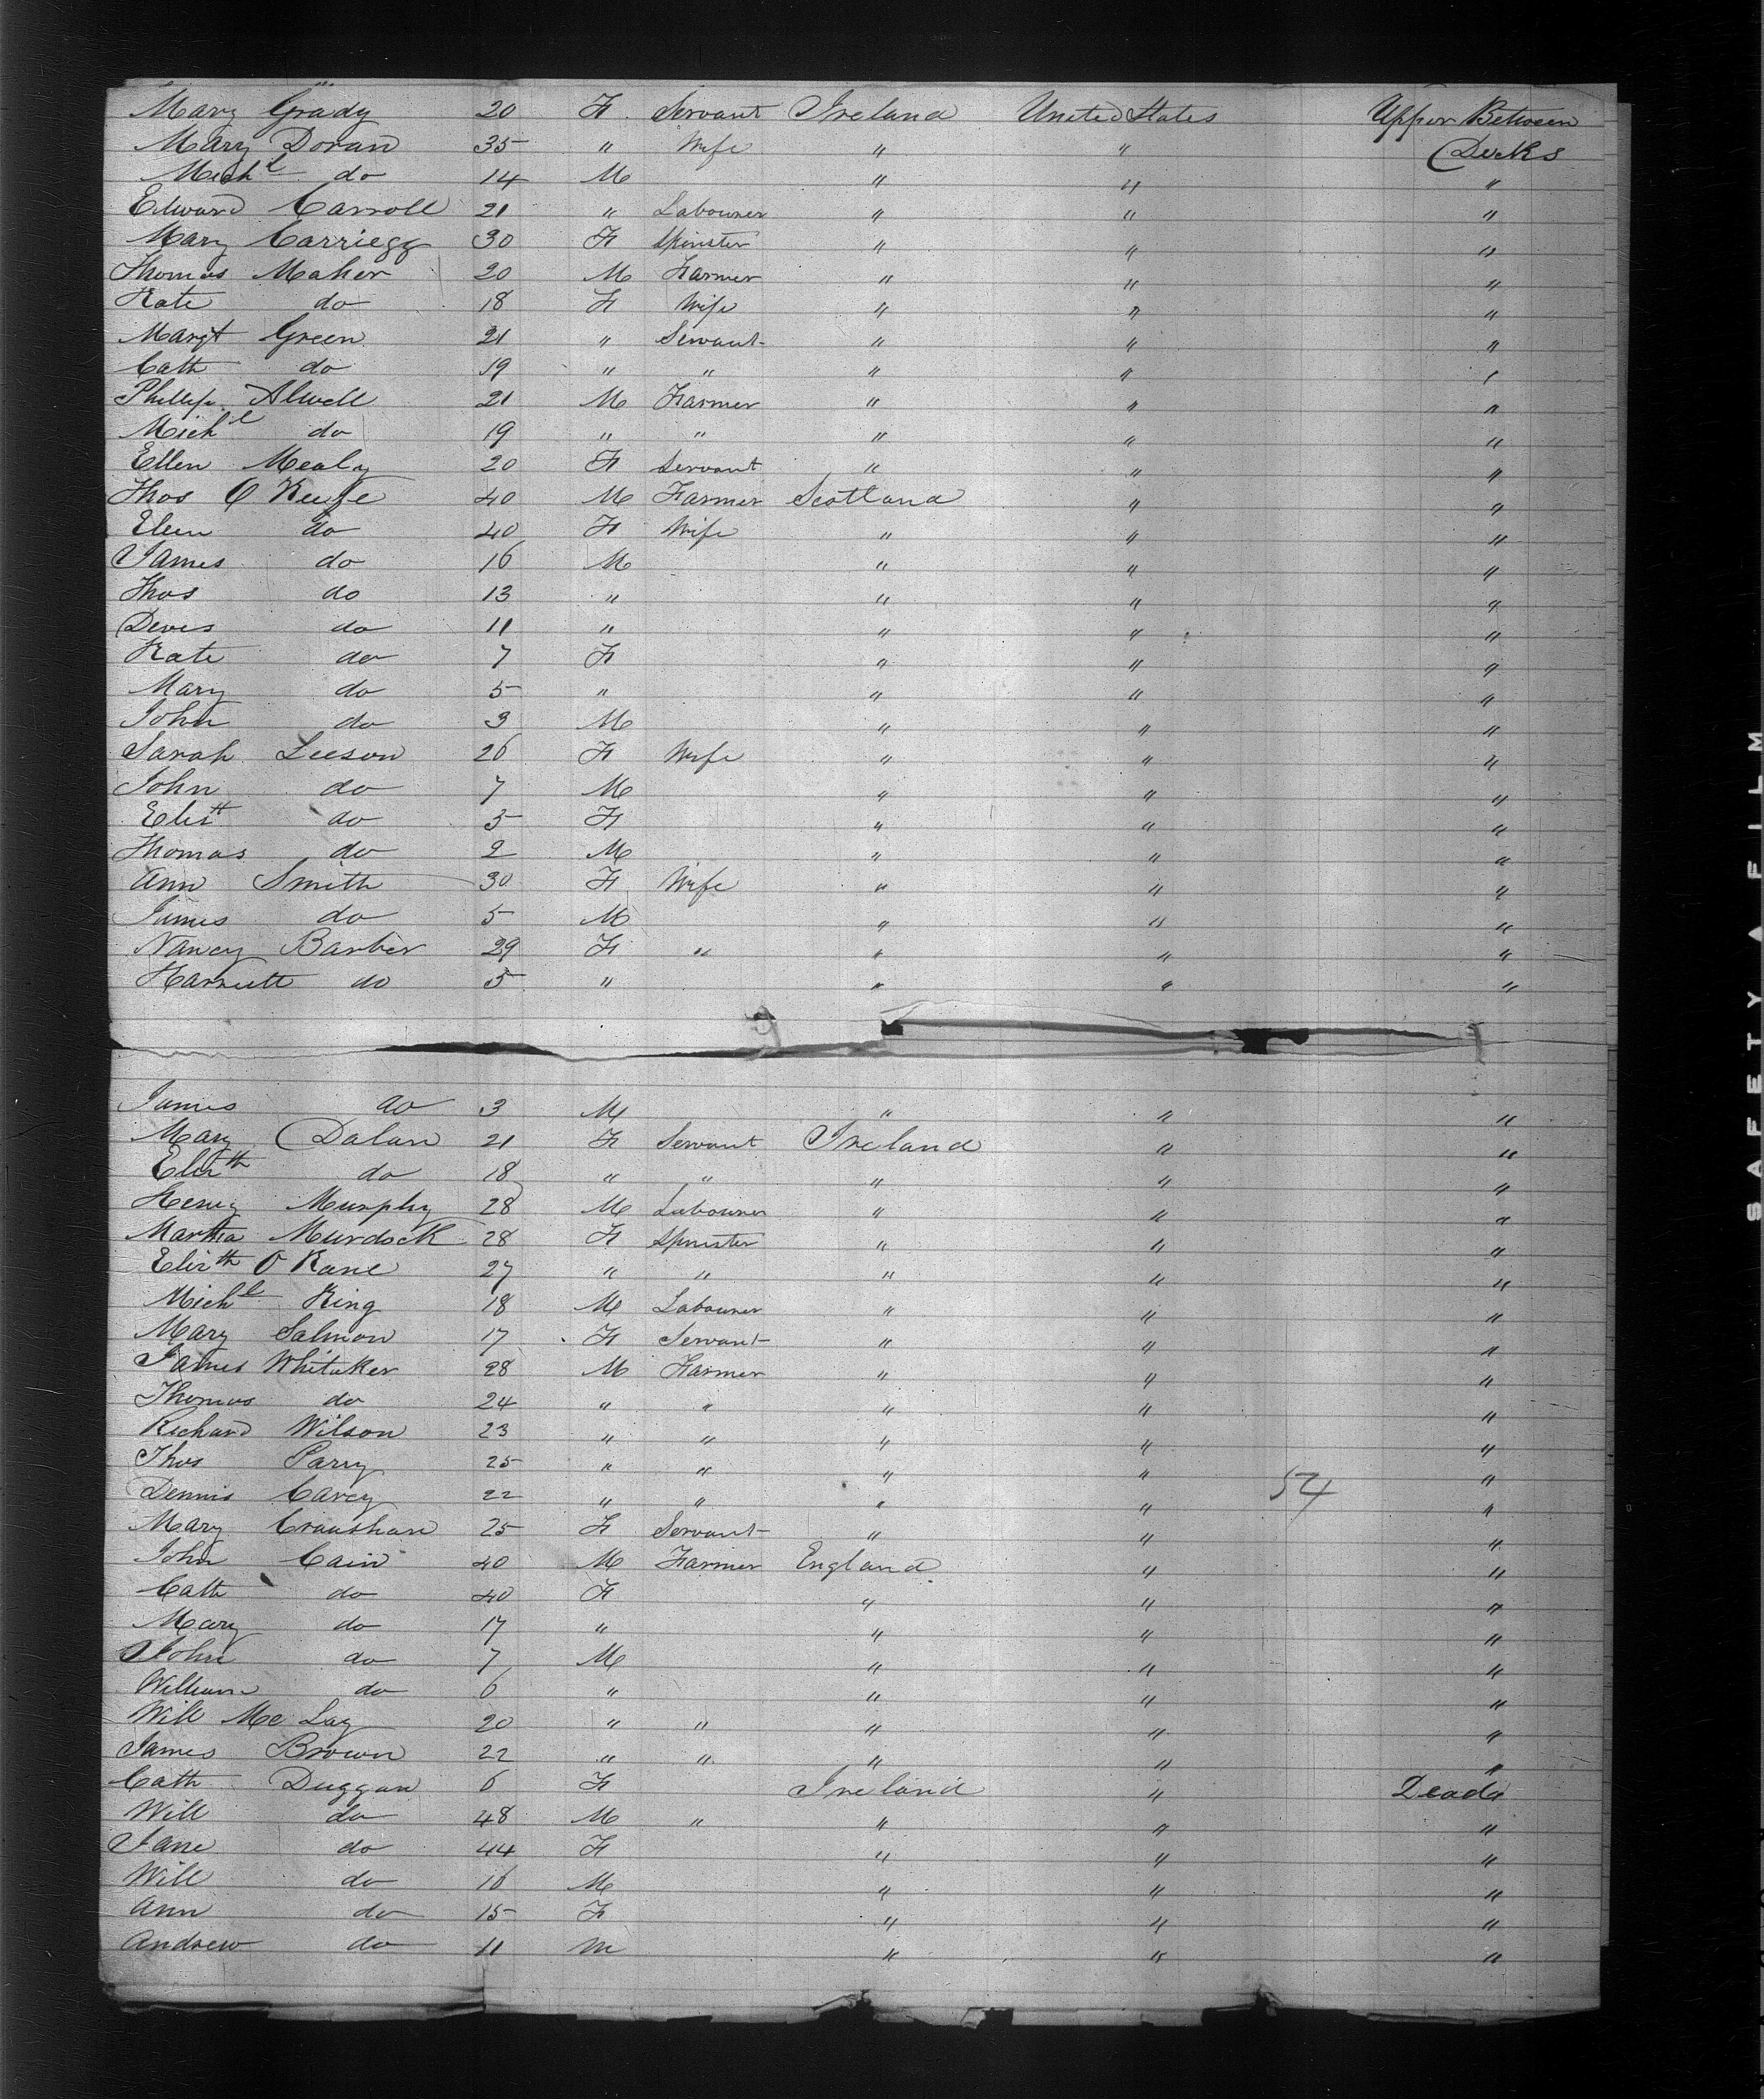 Mary Grady 20 F. Servant Ireland United States Upper Between
Mary Doran 35 " Wife " " Decks
Michl do 14 M " " "
Edward Carroll 21 " Labourer " " "
Mary Carriegg 30 F Spinster " " "
Thomas Maher 20 M Farmer " " "
Kate do 18 F Wife " " "
Margt Green 21 " Servant " " "
Cath do 19 " " " " "
Phillip Alwell 21 M Farmer " " "
Michl do 19 " " " " "
Ellen Mealy 20 F Servant " " "
Thos O Keefe 40 M Farmer Scotland " "
Elen do 40 F Wife " " "
James do 16 M " " "
Thos do 13 " " " "
Denis do 11 " " " "
Kate do 7 F " " "
Mary do 5 " " " "
John do 3 M " " "
Sarah Leeson 26 F Wife " " "
John do 7 M " " "
Elizth do 5 F " " "
Thomas do 2 M " " "
Ann Smith 30 F Wife " " "
James do 5 M " " "
Nancy Barber 29 F " " " "
Harriett do 5 " " " "
James do 3 M " " "
Mary Dolan 21 F Servant Ireland " "
Elizth do 18 " " " " "
Henry Murphy 28 M Labourer " " "
Martha Murdock 28 F Spinster " " "
Elizth O Kane 27 " " " " "
Michl King 18 M Labourer " " "
Mary Salmon 17 F Servant " " "
James Whitaker 28 M Farmer " " "
Thomas do 24 " " " " "
Richard Wilson 23 " " " " "
Thos Parry 25 " " " " "
Dennis Carey 22 " " " " 54 "
Mary Craushan 25 F Servant " " "
John Cain 40 M Farmer England " "
Cath do 40 F " " "
Mary do 17 " " " "
John do 7 M " " "
William do 6 " " " "
Will Mc Lay 20 " " " " "
James Brown 22 " " " " "
Cath Duggan 6 F Ireland "
Will do 48 M " " " "
Jane do 44 F " " "
Will do 16 M " " "
Ann do 15 F " " "
Andrew do 11 M " " "
SAFETY A FILM